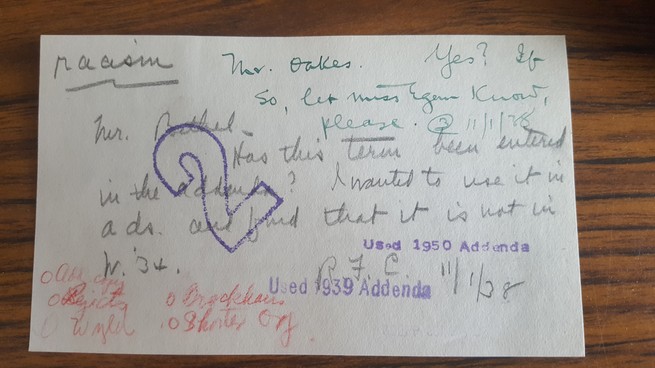 racism
Mr. Oakes. Yes? If
so, let Miss Egan know,
please. 11/1/38
Mr. Bethel
Has this term been entered
in the addenda? I wanted to use it in
ads. and find that it is not in
W. '34.
R. F. C. 11/1/38
Used 1950 Addenda
Used 1939 Addenda
o Brockhaus
o World o Shorter Oxf